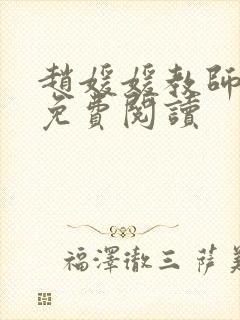 趙媛媛教師
免費閱讀
福澤徹三 薩